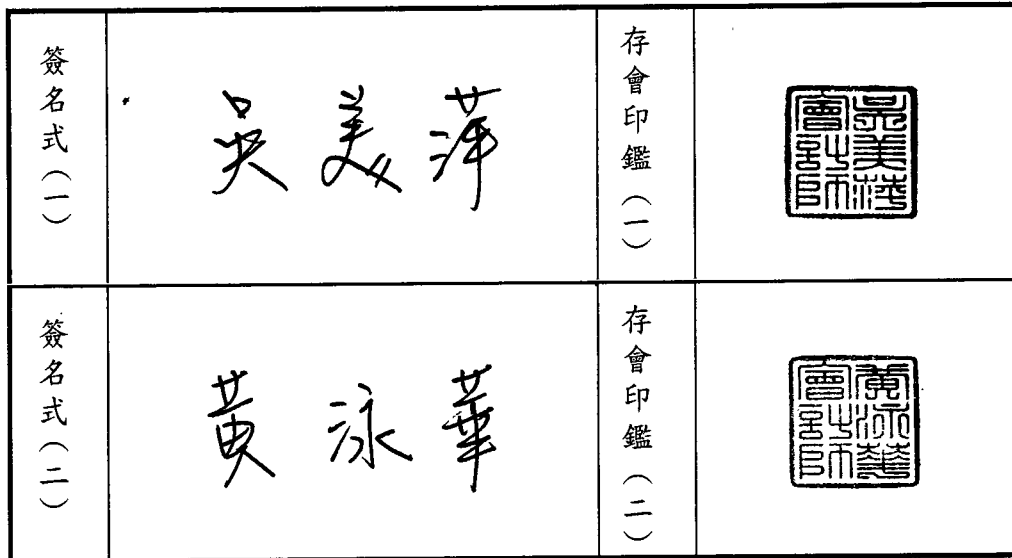 簽名式(一)
吳美萍
存會印鑑(一)
吳美萍會計師
簽名式(二)
黃泳華
存會印鑑(二)
黃泳華會計師